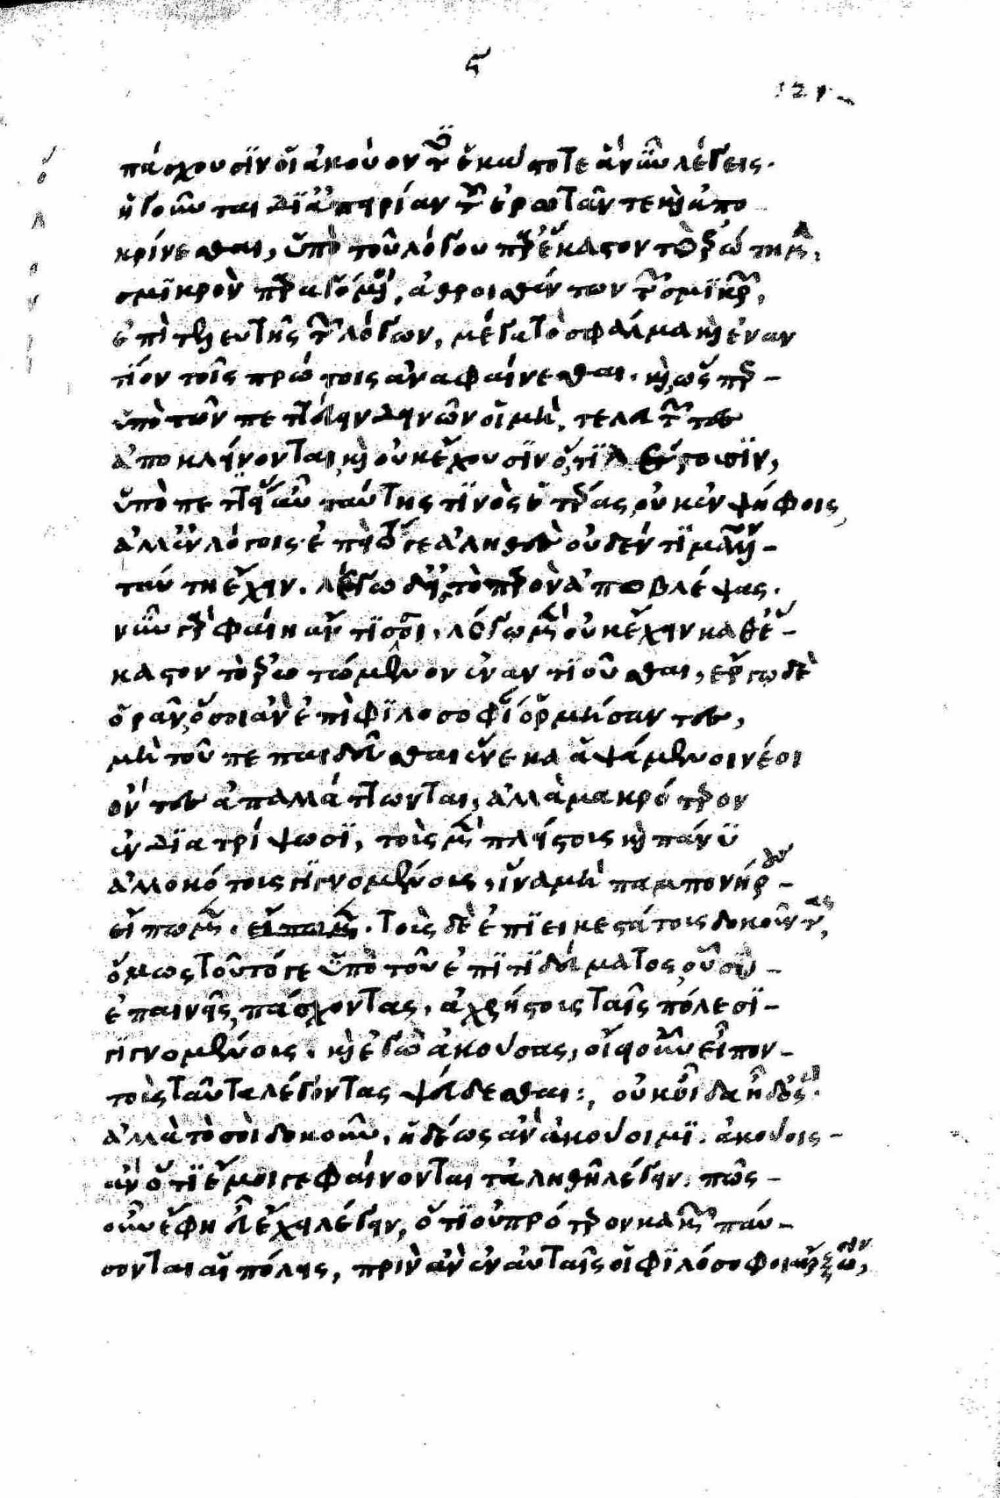 ϛ
121
πάσχουσϊν οἱ ἀκούοντες ἑκάστοτε ἃ νῦν λέγεις·
ἡγοῦνται δϊ' ἀπειρίαν τοῦ ἐρωτᾶν τε καὶ ἀπο
κρίνεσθαι, ὑπὸ τοῦ λόγου παρ' ἕκαστον τὸ ἐρώτημα,
σμϊκρὸν παραγόμενοι, ἀθροισθέντων τῶν σμϊκρῶν,
ἐπὶ τελευτῆς τῶν λόγων, μέγα τὸ σφάλμα καὶ ἐναν
τίον τοῖς πρώτοις ἀναφαίνεσθαι. καὶ ὥσπερ
ὑπὸ τῶν πεττεύειν δεινῶν οἱ μὴ, τελευτῶντες
ἀποκλείονται, καὶ οὐκ ἔχουσϊν ὅ,τϊ φέρωσϊν,
ὑπὸ πεττείας αὖ ταύτης τϊνὸς ἑτέρας, οὐκ ἐν ψήφοις
ἀλλ' ἐν λόγοις· ἐπεὶ τό γε ἀληθὲς οὐδέν τϊ μᾶλλον
ταύτῃ ἔχειν. λέγω δὴ πρὸς τὸ παρὸν ἀποβλέψας.
νῦν γὰρ φαίη ἄν τϊς σοι, λόγῳ μὲν οὐκ ἔχειν καθ' ἕ
καστον τὸ ἐρωτώμενον ἐναντιοῦσθαι, ἔργῳ δὲ
ὁρᾶν, ὅσοι ἂν ἐπὶ φϊλοσοφίαν ὁρμήσαντες,
μὴ τοῦ πεπαιδεῦσθαι ἕνεκα ἁψάμενοι νέοι
ὄντες ἀπαλλάττωνται, ἀλλὰ μακρότερον
ἐνδϊατρίψωσϊ, τοὺς μὲν πλείστους καὶ πάνϋ
ἀλλοκότους γιγνομένους, ἵνα μὴ παμπονήρους
εἴπωμεν. τοὺς δὲ ἐπϊεικεστάτους δοκοῦντας,
ὅμως τοῦτό γε ὑπὸ τοῦ ἐπϊτϊδεύματος, οὗ σὺ
ἐπαινεῖς πάσχοντας, ἀχρήστους ταῖς πόλεσϊ
γϊγνομένους. καὶ ἐγὼ ἀκούσας, οἴει οὖν εἶπον
τοὺς ταῦτα λέγοντας ψεύδεσθαι:, οὐκ οἶδα ἦ δ' ὅς·
ἀλλὰ τὸ σοὶ δοκοῦν, ἡδέως ἂν ἀκούοιμϊ. ἀκούοις
ἂν ὅτϊ ἔμοιγε φαίνονται τἀληθῆ λέγειν. πῶς
οὖν ἔφη εὖ ἔχει λέγειν, ὅτϊ οὐ πρότερον κακῶν παύ
σονται αἱ πόλεις, πρὶν ἂν ἐν αὐταῖς οἱ φϊλόσοφοι ἄρξωσιν,